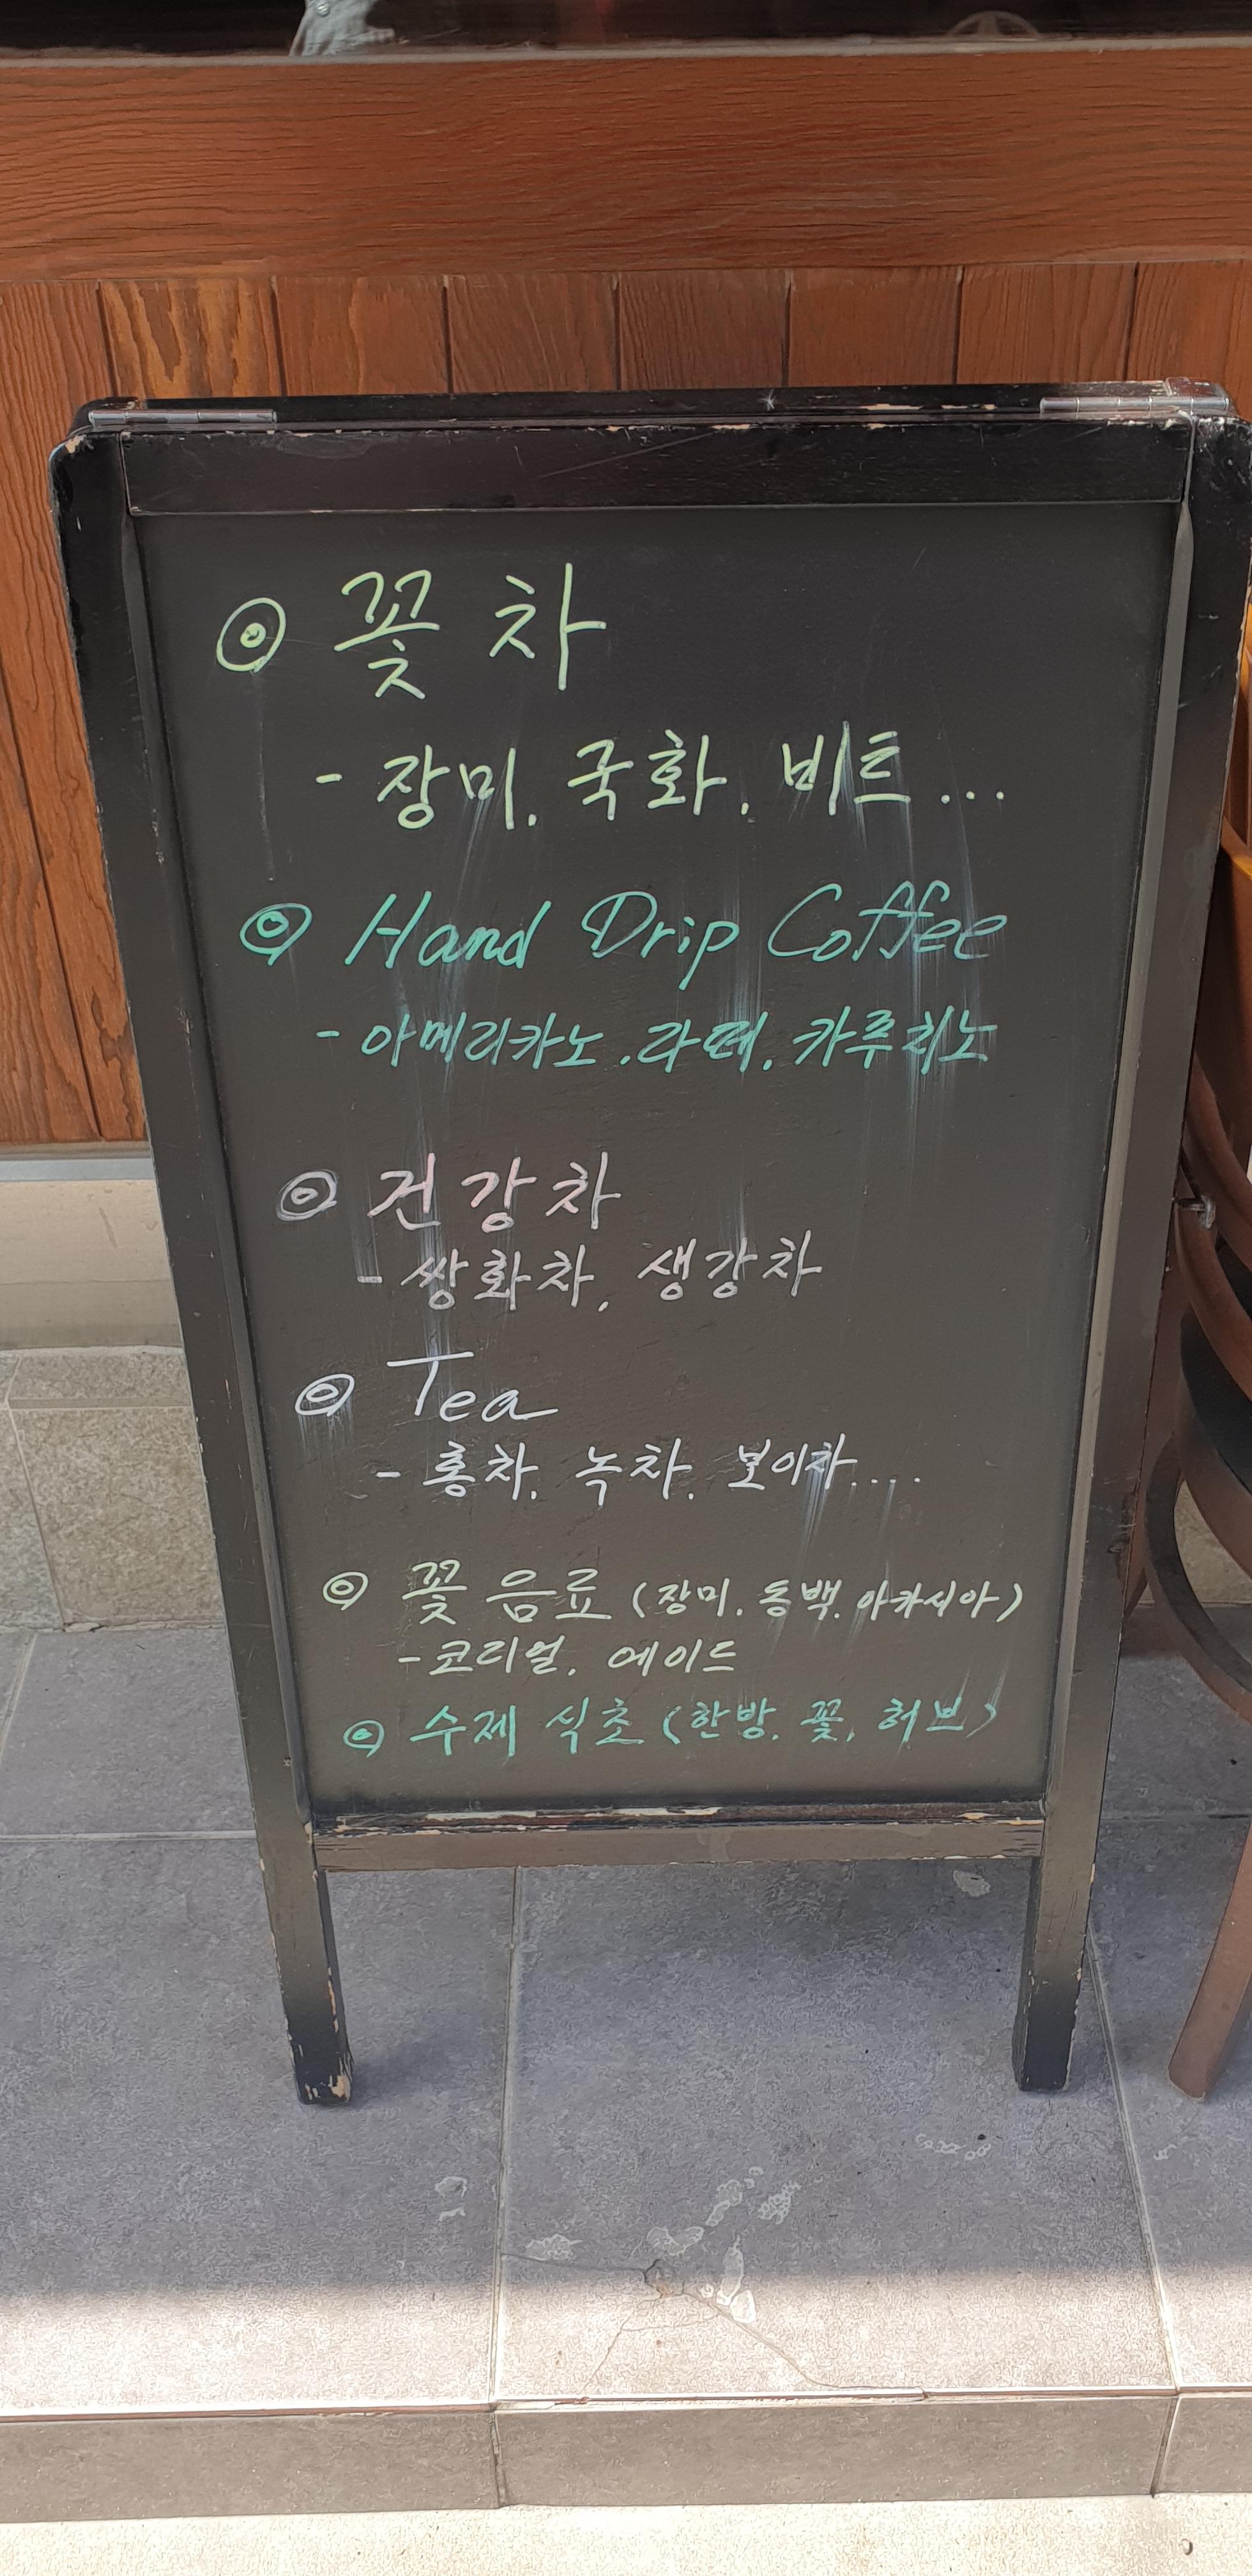 ◎ 꽃 차
- 장미, 국화, 비트...
◎ Hand Drip Coffee
- 아메리카노, 라떼, 카루치노
◎ 건강차
- 쌍화차, 생강차
◎ Tea
- 홍차, 녹차, 보이차....
◎ 꽃 음료 (장미, 동백, 아카시아)
- 코리얼, 에이드
◎ 수제 식초 (한방, 꽃, 허브)